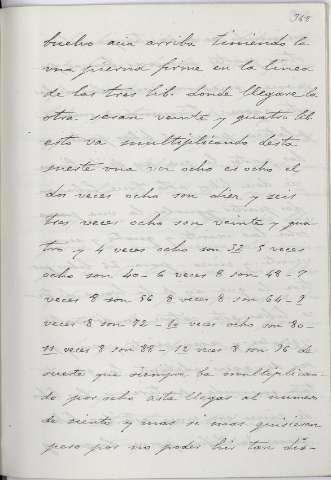 368
bucho acia arriba teniendo la
una pierna firme en la linea
de las tres lib. donde llegare la
otra seran veinte y quatro lib
esto va multiplicando desta
sueste una vez ocho es ocho el
dos veces ocho son diez y seis
tres veces ocho son veinte y qua-
tro y 4 veces ocho son 32 5 veces
ocho son 40 - 6 veces 8 son 48 - 7
veces 8 son 56 8 veces 8 son 64 - 9
veces 8 son 72 - 10 veces ocho son 80 -
11 veces 8 son 88 - 12 veces 8 son 96 de
suerte que siempre ba multiplican-
do por ocho asta llegar al numero
de siento y mas si mas quisieran
pero por no poder his tan dis-